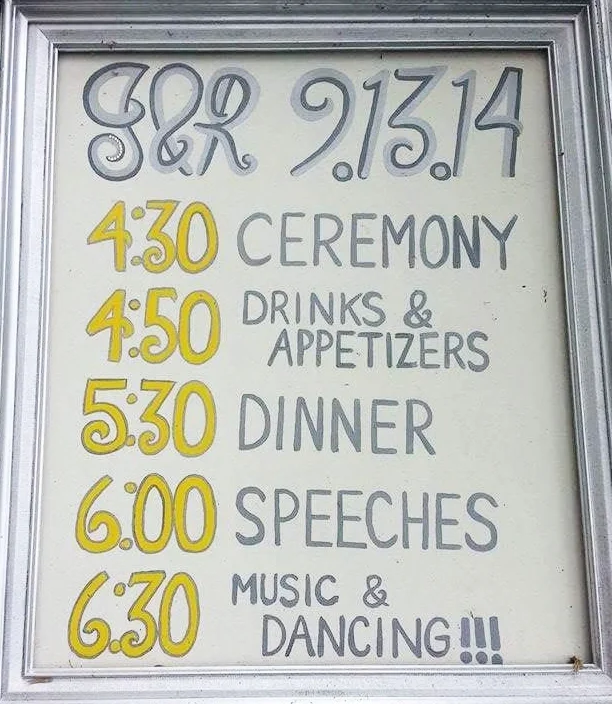 G&R 9.13.14
4:30 CEREMONY
4:50 DRINKS &
APPETIZERS
5:30 DINNER
6:00 SPEECHES
6:30 MUSIC &
DANCING!!!